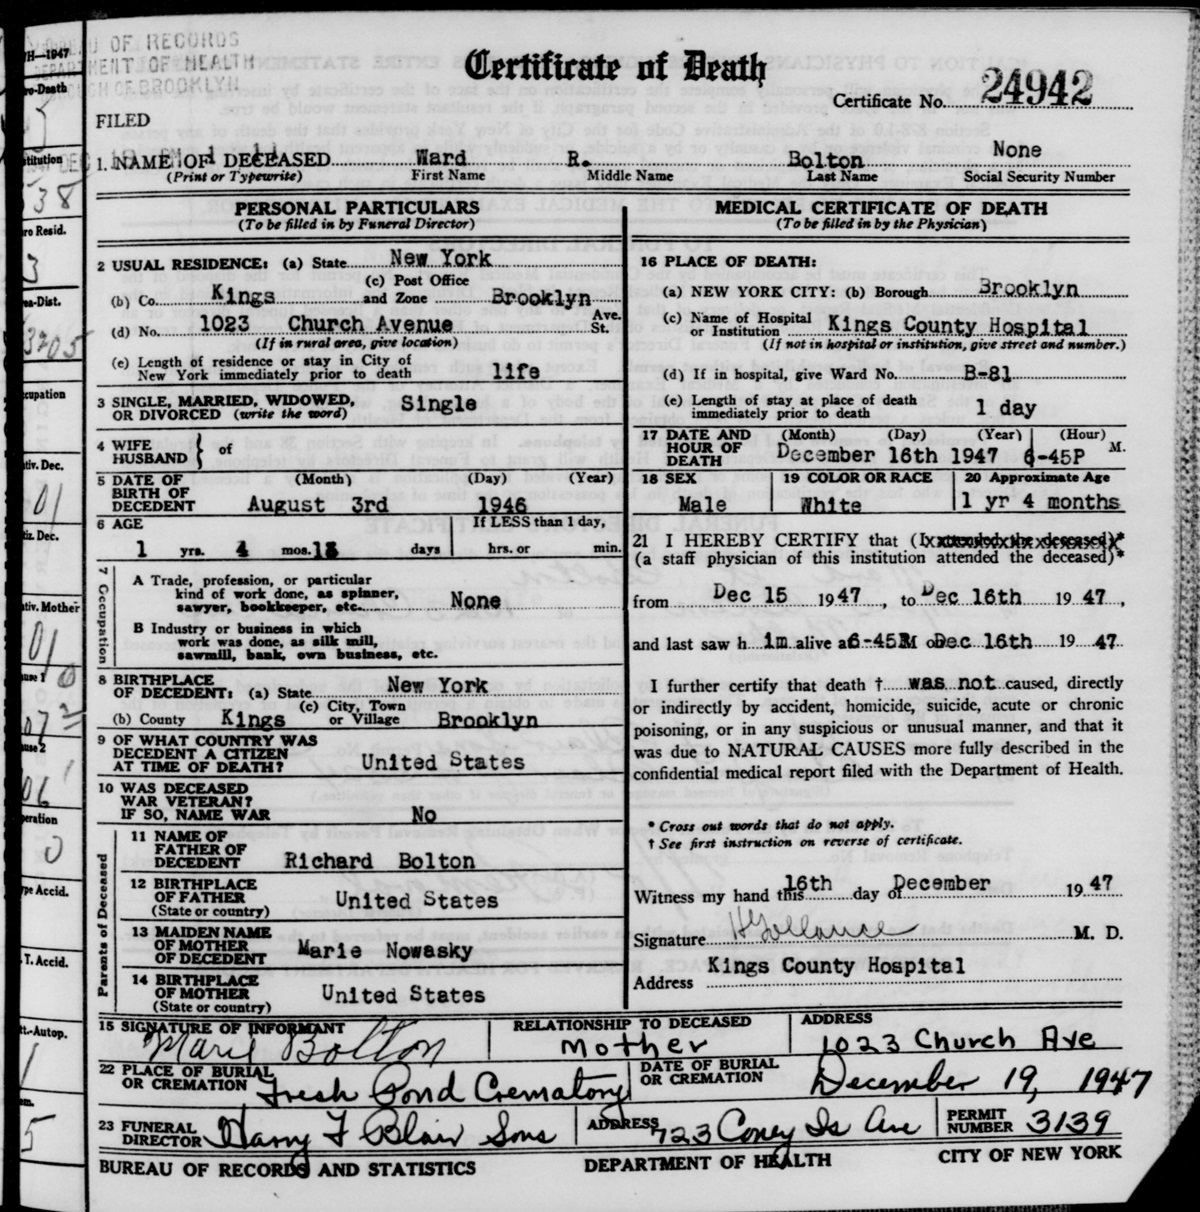 BUREAU OF RECORDS
DEPARTMENT OF HEALTH
BOROUGH OF BROOKLYN
Certificate of Death
Certificate No. 24942
FILED
1. NAME OF DECEASED Ward R. Bolton None
(Print or Typewrite) First Name Middle Name Last Name Social Security Number
PERSONAL PARTICULARS
(To be filled in by Funeral Director)
2 USUAL RESIDENCE: (a) State New York
(b) Co. Kings (c) Post Office and Zone Brooklyn
(d) No. 1023 Church Avenue Ave. St.
(If in rural area, give location)
(e) Length of residence or stay in City of
New York immediately prior to death life
3 SINGLE, MARRIED, WIDOWED,
OR DIVORCED (write the word) Single
4 WIFE
HUSBAND } of
5 DATE OF (Month) (Day) (Year)
BIRTH OF
DECEDENT August 3rd 1946
6 AGE If LESS than 1 day,
1 yrs. 4 mos. 13 days hrs. or min.
7 Occupation
A Trade, profession, or particular
kind of work done, as spinner,
sawyer, bookkeeper, etc. None
B Industry or business in which
work was done, as silk mill,
sawmill, bank, own business, etc.
8 BIRTHPLACE
OF DECEDENT: (a) State New York
(b) County Kings (c) City, Town or Village Brooklyn
9 OF WHAT COUNTRY WAS
DECEDENT A CITIZEN
AT TIME OF DEATH? United States
10 WAS DECEASED
WAR VETERAN?
IF SO, NAME WAR No
Parents of Deceased
11 NAME OF
FATHER OF
DECEDENT Richard Bolton
12 BIRTHPLACE
OF FATHER
(State or country) United States
13 MAIDEN NAME
OF MOTHER
OF DECEDENT Marie Nowasky
14 BIRTHPLACE
OF MOTHER
(State or country) United States
MEDICAL CERTIFICATE OF DEATH
(To be filled in by the Physician)
16 PLACE OF DEATH:
(a) NEW YORK CITY: (b) Borough Brooklyn
(c) Name of Hospital
or Institution Kings County Hospital
(If not in hospital or institution, give street and number.)
(d) If in hospital, give Ward No. B-81
(e) Length of stay at place of death
immediately prior to death 1 day
17 DATE AND (Month) (Day) (Year) (Hour)
HOUR OF
DEATH December 16th 1947 6-45P M.
18 SEX 19 COLOR OR RACE 20 Approximate Age
Male White 1 yr 4 months
21 I HEREBY CERTIFY that (I attended the deceased)*
(a staff physician of this institution attended the deceased)*
from Dec 15 1947, to Dec 16th 1947,
and last saw h im alive at 6-45P M on Dec 16th 1947.
I further certify that death † was not caused, directly
or indirectly by accident, homicide, suicide, acute or chronic
poisoning, or in any suspicious or unusual manner, and that it
was due to NATURAL CAUSES more fully described in the
confidential medical report filed with the Department of Health.
* Cross out words that do not apply.
† See first instruction on reverse of certificate.
Witness my hand this 16th day of December 1947
Signature M. D.
Kings County Hospital
Address
15 SIGNATURE OF INFORMANT RELATIONSHIP TO DECEASED ADDRESS
Marie Bolton Mother 1023 Church Ave
22 PLACE OF BURIAL
OR CREMATION Fresh Pond Crematory DATE OF BURIAL
OR CREMATION December 19, 1947
23 FUNERAL
DIRECTOR Harry T Blair Sons ADDRESS 723 Coney Is Ave PERMIT
NUMBER 3139
BUREAU OF RECORDS AND STATISTICS DEPARTMENT OF HEALTH CITY OF NEW YORK